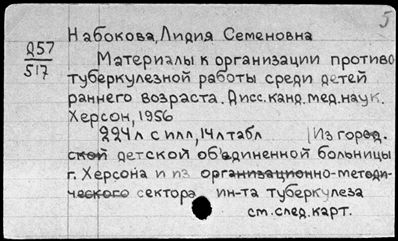 5
Д57
517
Набокова, Лидия Семеновна
Материалы к организации противо
туберкулезной работы среди детей
раннего возраста. Дисс. канд. мед. наук.
Херсон, 1956
224 л с илл, 14 л табл | Из город.
ской детской объединенной больницы
г. Херсона и из организационно-методи-
ческого сектора ин-та туберкулеза
см. след. карт.